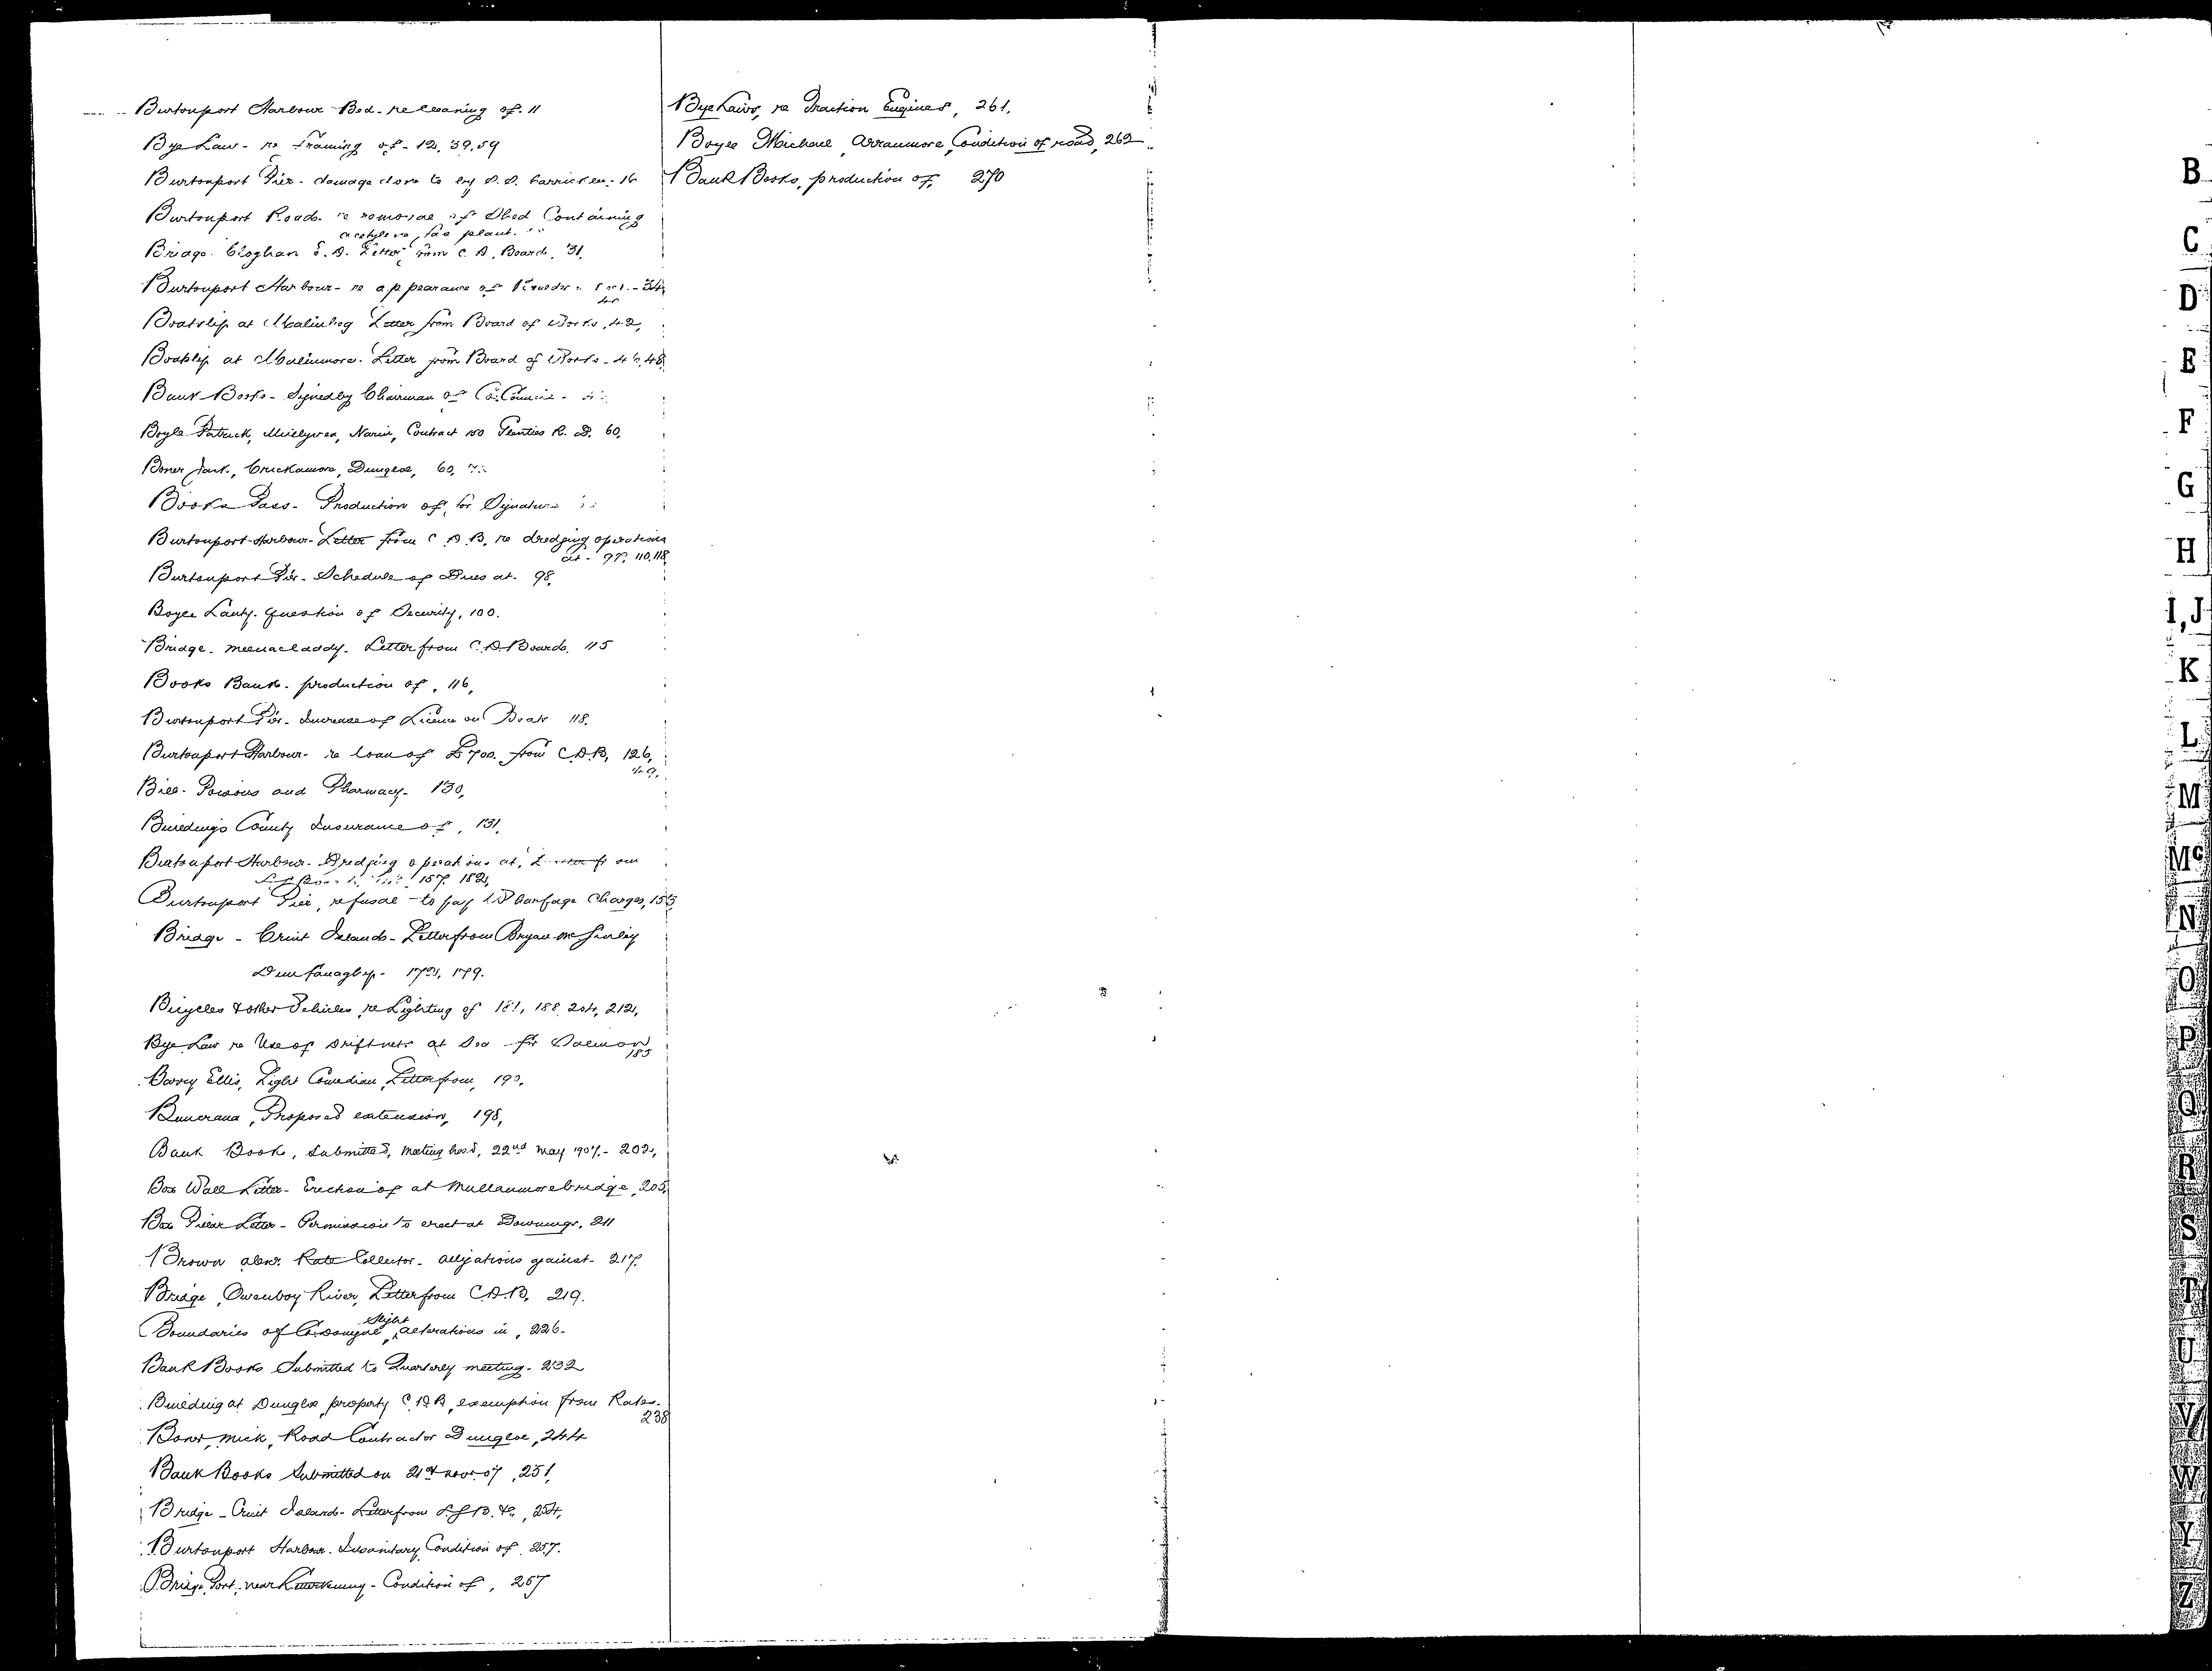 Burtonport Harbour Bed - re cleaning of - 11
Bye Law - re Framing of - 12, 39, 59
Burtonport Pier - damage done to by S.S. Carricklee - 16
Burtonport Roads - re removal of Shed Containing
acetylene gas plant.
Bridge Cloghan E.D. Letter from C.D. Board, 31,
Burtonport Harbour - re appearance of - 34,
Boatslip at Malinbeg Letter from Board of Works, 42,
Boatslip at Malinmore. Letter from Board of Works - 46, 48,
Bank Books - Signed by Chairman of Co. Council -
Boyle Patrick, Mullyvea, Narin, Contract 150 Glenties R. D. 60,
Boner Jack, Cruckamore, Dungloe, 60,
Books Pass - Production of, for Signature
Burtonport Harbour - Letter from C.D.B. re dredging operations
at - 97, 110, 118,
Burtonport Pier - Schedule of Dues at. 98,
Boyce Lanty - Question of Security, 100.
Bridge - Meenacladdy - Letter from C.D. Board. 115
Books Bank - production of, 116,
Burtonport Pier - Increase of Licence on Boats 118.
Burtonport Harbour - re loan of £700 from C.D.B, 126,
Bill - Poisons and Pharmacy - 130,
Buildings County Insurance of, 131,
Burtonport Harbour - Dredging operations at, from
157, 182,
Burtonport Pier, refusal to pay Wharfage Charges, 155,
Bridge - Cruit Island - Letter from Bryan McGinley
Dunfanaghy - 172, 179.
Bicycles & other Vehicles, re Lighting of 181, 188, 204, 212,
Bye Law re Use of Driftnets at Sea for Salmon
185
Barry Ellis, Light Comedian, Letter from, 190,
Buncrana, Proposed extension, 198,
Bank Books, Submitted, meeting held, 22nd May 1907 - 202,
Box Wall Letter - Erection of at Mullanmore bridge, 205,
Box Pillar Letter - Permission to erect at Downings, 211
Brown Alexr. Rate Collector - allegations against - 217.
Bridge, Owenboy River, Letter from C.D.B, 219.
Slight
Boundaries of Co. Donegal, alterations in, 226 -
Bank Books Submitted to Quarterly meeting - 232
Building at Dungloe, property C.D.B, exemption from Rates -
238
Boner, Mick, Road Contractor Dungloe, 244
Bank Books Submitted on 21st Nov. 07, 251,
Bridge - Cruit Island - Letter from L.G.B. &c, 254,
Burtonport Harbour. Insanitary Condition of, 257.
Bridge, Port, near Letterkenny - Condition of, 257
Bye Laws, re Traction Engines, 261,
Boyle Michael, Arranmore, Condition of road, 262
Bank Books, production of, 270
B
C
D
E
F
G
H
I,J
K
L
M
Mc
N
O
P
Q
R
S
T
U
V
W
Y
Z